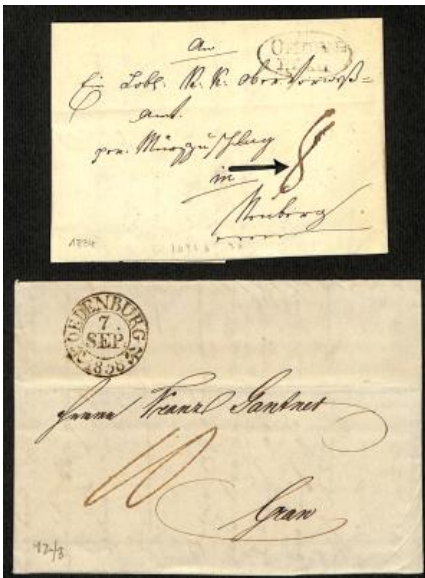 An
Ein Löbl. K. K. Oberverweß=
Amt.
per. Mürzzuschlag
in
8
Neuberg
1834
OEDENBURG
7
SEP.
1838
Herrn Franz Gantner
10
Gran